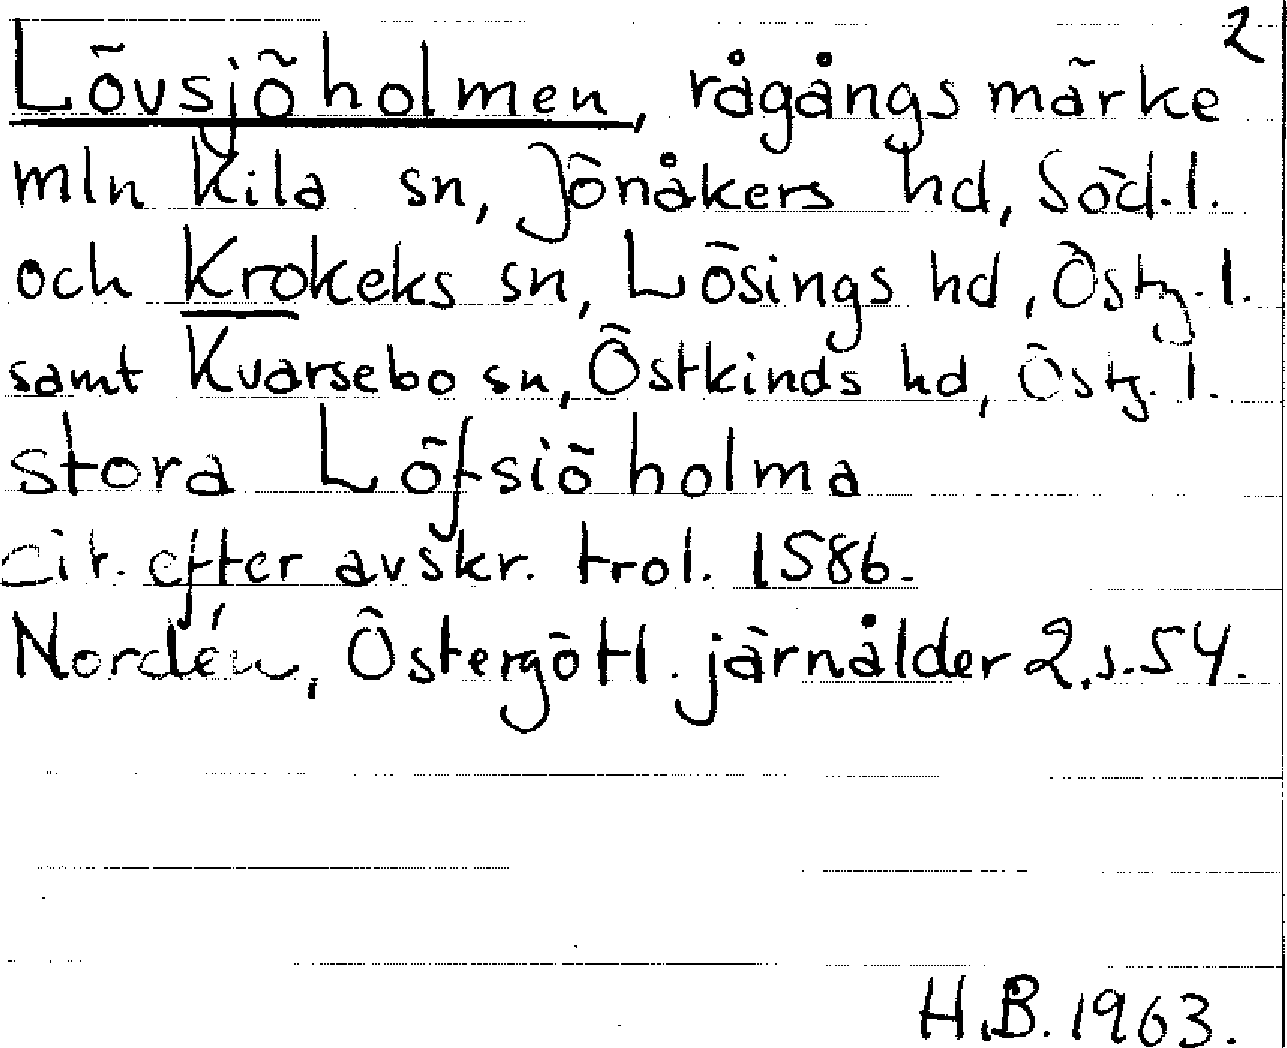 2
Lövsjöholmen, rågångsmärke
mln Kila sn, Jönåkers hd, Söd.l.
och Krokeks sn, Lösings hd, Östg.l.
samt Kvarsebo sn, Östkinds hd, Östg.l.
stora Löfsiöholma
cit. efter avskr. trol. 1586.
Nordén, Östergötl. järnålder 2, s. 54.
H.B. 1963.